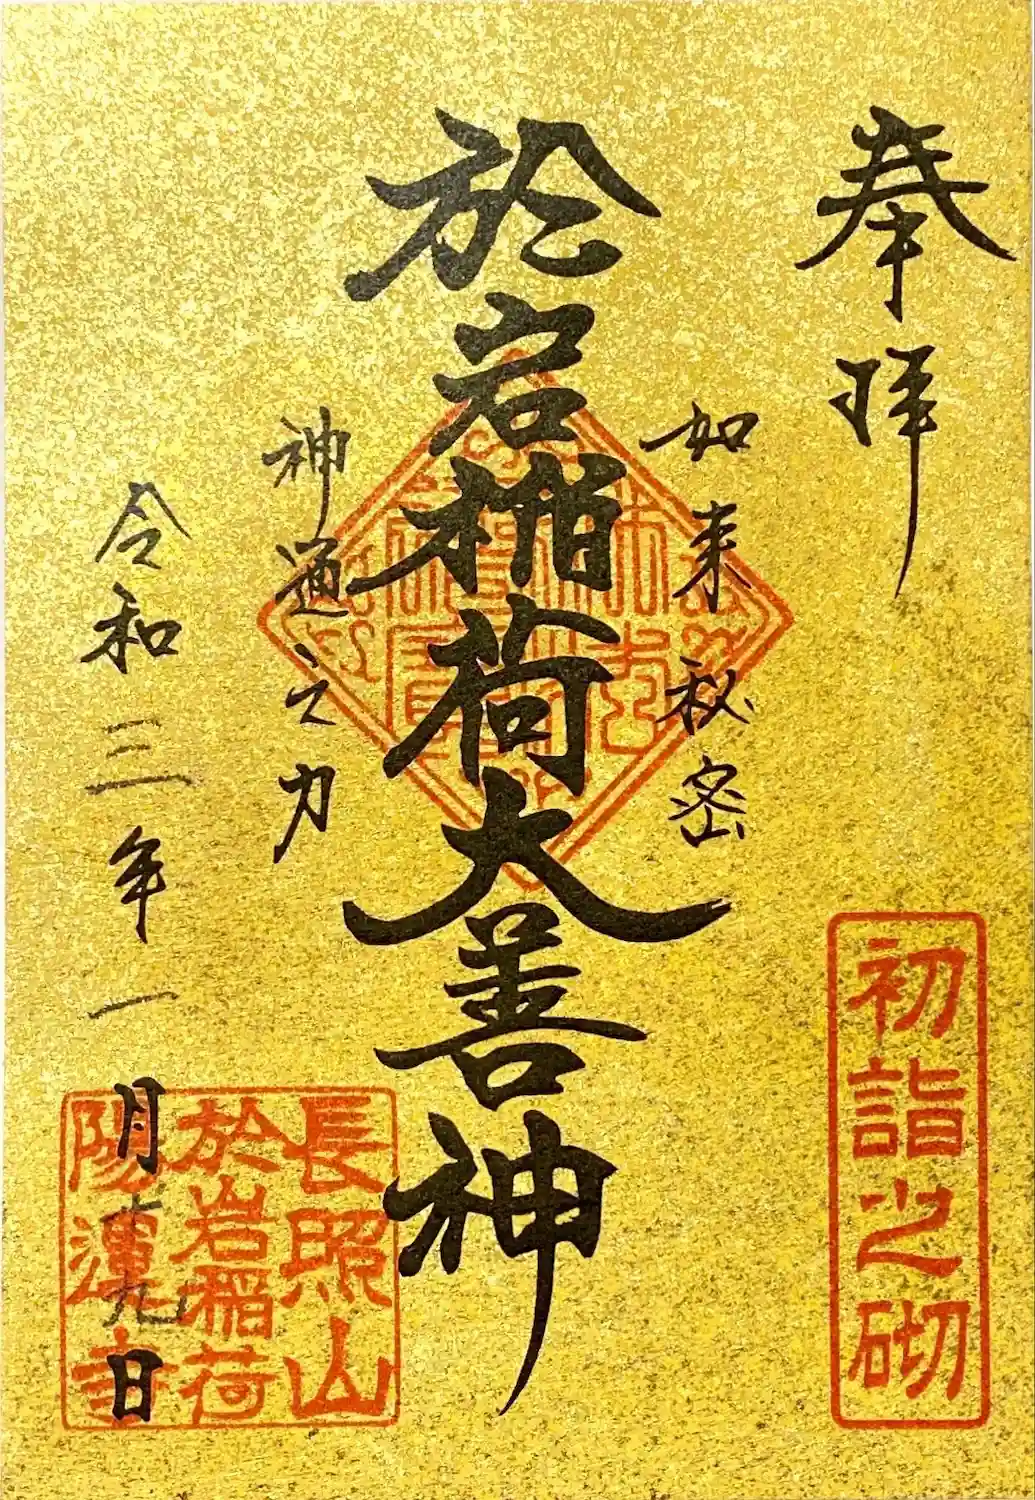 奉拝
初詣之砌
如来秘密
於岩稲荷大善神
神通之力
令和三年一月十九日
長照山
於岩稲荷
陽運寺